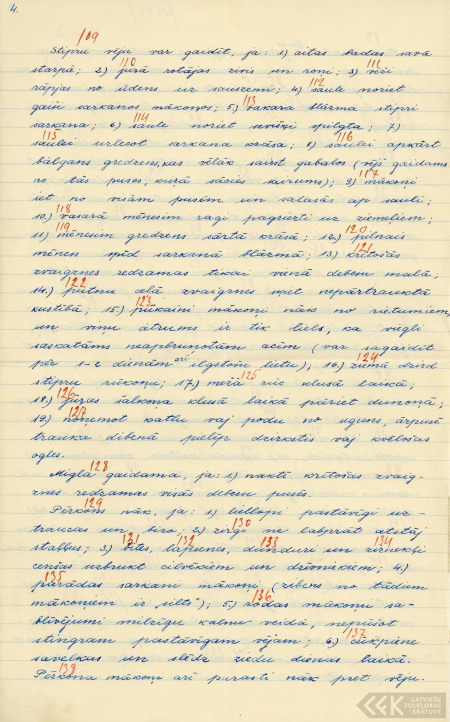 4.
109
Stipru vēju var gaidīt, ja: 1) aitas badas savā
110 111
starpā; 2) jūrā rotājas zivis un roņi; 3) vēži
112
rāpjas no ūdens uz sauszemi; 4) saule noriet
113
gaiši sarkanos mākoņos; 5) vakara blāzma stipri
114
sarkana; 6) saule noriet sevišķi spilgta; 7)
115 116
saulei uzlecot sarkana krāsa; 8) saulei apkārt
bālgans gredzens, kas vēlāk saist gabalos (vējš gaidams
117
no tās puses, kuŗā sācies sairums); 9) mākoņi
iet no visām pusēm un salasās ap sauli;
118
10.) vasarā mēnesim ragi pagriezti uz ziemeļiem;
119 120
11.) mēnesim gredzens sārtā krāsā; 12.) pilnais
121
mēness spīd sarkanā blāzmā; 13.) krītošās
zvaigznes redzamas tikai vienā debesu malā;
122
14.) putnu ceļā zvaigznes iet nepārtrauktā
123
kustībā; 15.) pūkaini mākoņi nāk no rietumiem,
un viņu ātrums ir tik liels, ka viegli
saskatāms neapbruņotām acīm (var sagaidīt
124
pēc 1-2 dienām arī ilgstošu lietu); 16.) ziemā dzird
125
stipru rūkoņu; 17.) mežā rūc klusā laikā;
126
18.) jūŗas šalkoņa klusā laikā pāriet dunoņā;
127
19.) noņemot katlu vaj podu no uguns, ārpusē
trauka dibenā pielīp dzirkstis vaj kvēlošas
ogles.
128
Migla gaidama, ja: 1) naktī krītošas zvaig-
znes redzamas visās debesu pusēs.
129
Pērkons nāk, ja: 1) liellopi pastāvīgi uz-
130
traucas un bizo; 2) zirgi ne labprāt atstāj
131 132 133 134
stalļus; 3) bites, lapsenes, dunduri un zirnekļi
cenšas uzbrukt cilvēkiem un dzīvniekiem; 4.)
135
parādas sarkani mākoņi (zibens no tādiem
136
mākoņiem ir „silts"); 5.) rodas mākoņu sa-
blīvējumi milzīgu kalnu veidā, nepūšot
137
stingram pastāvīgam vējam; 6.) cūkpiene
savelkas un slēdz ziedu dienas laikā.
138
Pērkona mākoņi arī parasti nāk pret vēju.
LATVIEŠU
FOLKLORAS
KRĀTUVE